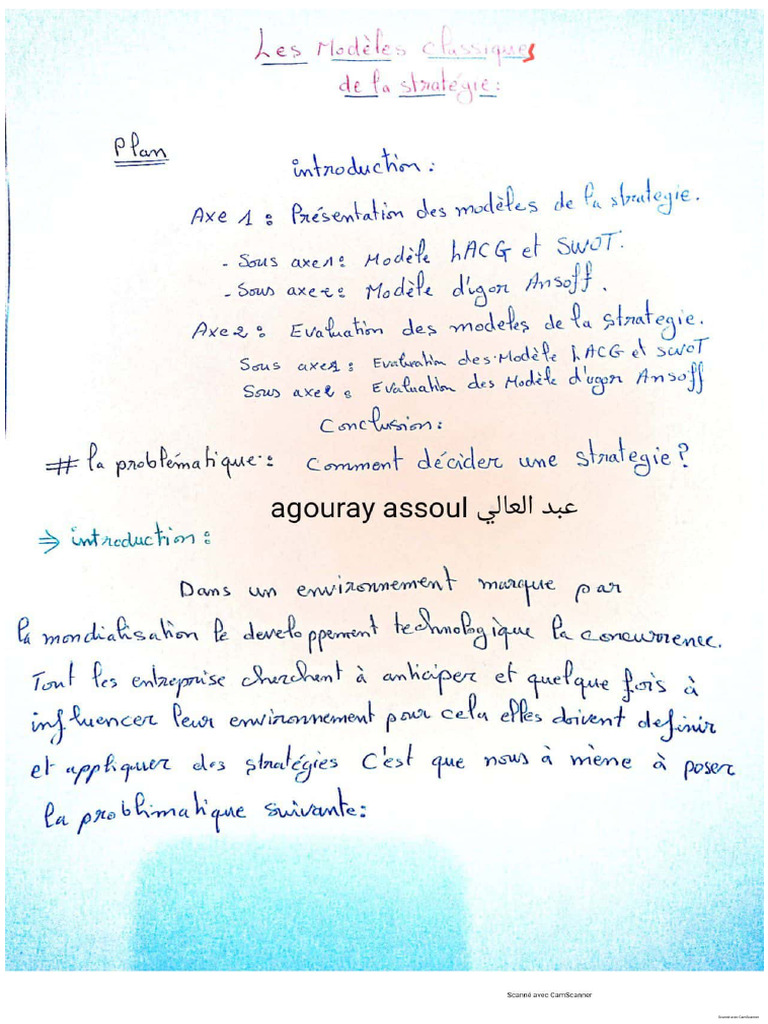 Les Modèles classiques
de la stratégie:
Plan
introduction:
Axe 1: Présentation des modèles de la strategie.
- Sous axe1: Modèle hACG et SWOT.
- Sous axe2: Modèle d'igor Ansoff.
Axe2: Evaluation des modeles de la strategie.
Sous axe1: Evaluation des Modèle hACG et SWOT
Sous axe2: Evaluation des Modèle d'ugor Ansoff
Conclusion:
# la problématique: Comment décider une strategie?
agouray assoul عبد العالي
⇒ introduction:
Dans un environnement marque par
la mondialisation le developpement technologique la concurrence.
Tout les entreprise cherchent à anticiper et quelque fois à
influencer leur environnement pour cela elles doivent definir
et appliquer des stratégies C'est que nous à mène à poser
la problimatique suivante:
Scanné avec CamScanner
Scanné avec CamScanner